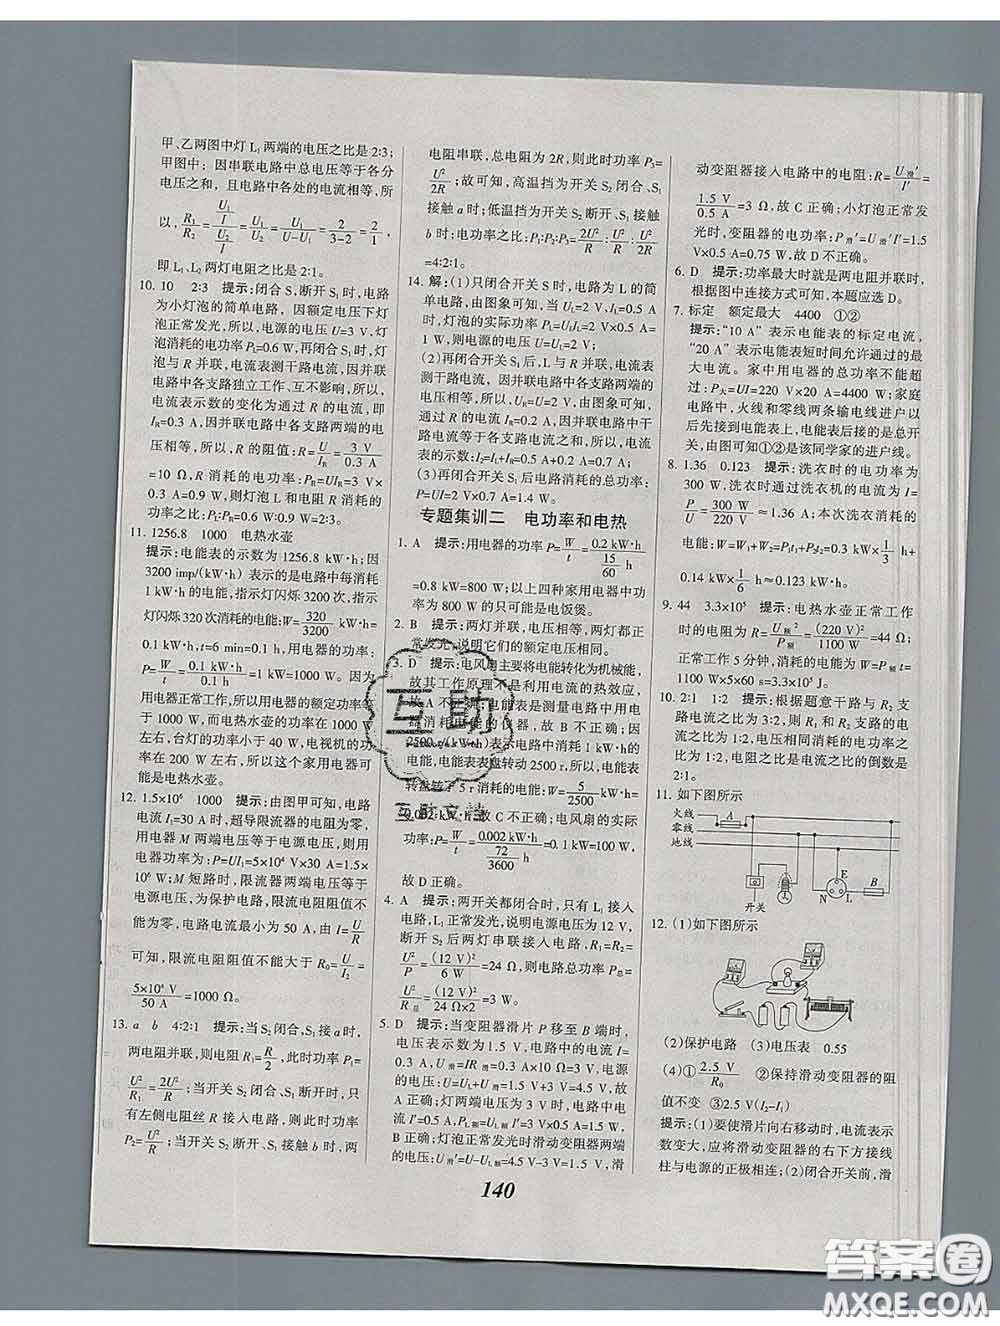 甲、乙两图中灯 L₁ 两端的电压之比是 2:3;
甲图中：因串联电路中总电压等于各分
电压之和，且电路中各处的电流相等，所
以，R₁/R₂=(U₁/I)/(U₂/I)=U₁/U₂=U₁/(U-U₁)=2/(3-2)=2/1，
即 L₁、L₂ 两灯电阻之比是 2:1。
10. 10 2:3 提示：闭合 S，断开 S₁ 时，电路
为小灯泡的简单电路，因额定电压下灯
泡正常发光，所以，电源的电压 U=3 V，灯
泡消耗的电功率 P_L=0.6 W，再闭合 S₁ 后，灯
泡与 R 并联，电流表测干路电流，因并联
电路中各支路独立工作、互不影响，所以，
电流表示数的变化为通过 R 的电流，即
I_R=0.3 A，因并联电路中各支路两端的电
压相等，所以，R 的阻值：R=U/I_R=3 V/0.3 A
=10 Ω，R 消耗的电功率：P_R=UI_R=3 V×
0.3 A=0.9 W，则灯泡 L 和电阻 R 消耗的
功率之比：P_L:P_R=0.6 W:0.9 W=2:3。
11. 1256.8 1000 电热水壶
提示：电能表的示数为 1256.8 kW·h；因
3200 imp/(kW·h)表示的是电路中每消耗
1 kW·h 的电能，指示灯闪烁 3200 次，指示
灯闪烁320 次消耗的电能：W=320/3200 kW·h
=0.1 kW·h，t=6 min=0.1 h，用电器的功率：
P=W/t=0.1 kW·h/0.1 h=1 kW=1000 W。因为
用电器正常工作，所以用电器的额定功率等
于 1000 W，而电热水壶的功率在 1000 W
左右，台灯的功率小于 40 W，电视机的功率
在 200 W 左右，所以这个家用电器可
能是电热水壶。
12. 1.5×10⁶ 1000 提示：由图甲可知，电路
电流 I=30 A 时，超导限流器的电阻为零，
用电器 M 两端电压等于电源电压，则
用电器功率为：P=UI₁=5×10⁴ V×30 A=1.5×
10⁶ W；M 短路时，限流器两端电压等于
电源电压，为保护电路，限流电阻阻值
不能太小，电路电流最小为 50 A，由 I=U/R
可知，限流电阻阻值不能大于 R₀=U/I₂=
5×10⁴ V/50 A=1000 Ω。
13. a b 4:2:1 提示：当 S₂ 闭合、S₁ 接 a 时，
两电阻并联，则电阻 R₁=R/2，此时功率 P₁=
U²/R₁=2U²/R；当开关 S₂ 闭合、S₁ 断开时，只
有左侧电阻丝 R 接入电路，则此时功率
P₂=U²/R；当开关 S₂ 断开、S₁ 接触 b 时，两
电阻串联，总电阻为 2R，则此时功率 P₃=
U²/2R；故可知，高温挡为开关 S₂ 闭合、S₁
接触 a 时；低温挡为开关 S₂ 断开、S₁ 接触
b 时；电功率之比：P₁:P₂:P₃=2U²/R:U²/R:U²/2R
=4:2:1。
14. 解：(1)只闭合开关 S 时，电路为 L 的简
单电路，由图象可知，当 U_L=2 V，I=0.5 A，
灯泡的实际功率 P_L=U_LI=2 V×0.5 A=
1 W，则电源的电压 U=U_L=2 V；
(2)再闭合开关 S₁ 后，L 与 R 并联，电流表
测干路电流，因并联电路中各支路两端的
电压相等，所以，U_R=U=2 V，由图象可知，
通过 R 的电流 I_R=0.2 A，因并联电路中干
路电流等于各支路电流之和，所以，电流
表的示数：I=I_L+I_R=0.5 A+0.2 A=0.7 A；
(3)再闭合开关 S₁ 后电路消耗的总功率：
P=UI=2 V×0.7 A=1.4 W。
专题集训二 电功率和电热
1. A 提示：用电器的功率 P=W/t=0.2 kW·h/(15/60 h)
=0.8 kW=800 W；以上四种家用电器中功
率为 800 W 的只可能是电饭煲。
2. B 提示：两灯并联，电压相等，两灯都正
常发光，说明它们的额定电压相等。
3. D 提示：电风扇主要将电能转化为机械能，
故其工作原理不是利用电流的热效应，
故 A 不正确；电能表是测量电路中用电
器消耗电能的仪器，故 B 不正确；因
2500 r/(kW·h)表示电路中消耗 1 kW·h 的
电能，电能表表盘转动 2500 r，所以，
转盘转了 5 r 消耗的电能：W=5/2500 kW·h=
0.002 kW·h，故 C 不正确；电风扇的实际
功率：P=W/t=0.002 kW·h/(72/3600 h)=0.1 kW=100 W，
故 D 正确。
4. A 提示：两开关都闭合时，只有 L₁ 接入
电路，L₁ 正常发光，说明电源电压为 12 V，
断开 S₂ 后两灯串联接入电路，R₁=R₂=
U²/P=(12 V)²/6 W=24 Ω，则电路总功率 P总=
U²/R总=(12 V)²/(24 Ω×2)=3 W。
5. D 提示：当变阻器滑片 P 移至 B 端时，
U滑为 1.5 V，由图乙可知，电路中的电流 I=
0.3 A，U滑=IR滑=0.3 A×10 Ω=3 V，故
电源电压 U=U_L+U滑=1.5 V+3 V=4.5 V，故
A 正确；灯两端电压为 3 V 时，电路中电
流 I'=0.5 A，P_L额=U_L额I'=3 V×0.5 A=1.5 W，故
B 正确；灯泡正常发光时滑动变阻器两端
的电压：U滑'=U-U_L额=4.5 V-3 V=1.5 V，滑
动变阻器接入电路中的电阻：R=U滑'/I'=
1.5 V/0.5 A=3 Ω，故 C 正确；小灯泡正常发
光时，变阻器的电功率：P滑'=U滑'I'=1.5
V×0.5 A=0.75 W，故 D 不正确。
6. D 提示：功率最大时就是两电阻并联时，
根据图中连接方式可知，本题应选 D。
7. 标定 额定最大 4400 ①②
提示："10 A"表示电能表的标定电流，
"20 A"表示电能表短时间允许通过的最
大电流。家中用电器的总功率不能超
过：P大=UI=220 V×20 A=4400 W；家庭
电路中，火线和零线两条输电线进户以
后先接到电能表上，电能表后接的是总开
关，由图可知①②是该同学家的进户线。
8. 1.36 0.123 提示：洗衣时的电功率为
300 W，洗衣时通过洗衣机的电流为 I=
P/U=300 W/220 V≈1.36 A；本次洗衣消耗的
电能：W=W₁+W₂=P₁t₁+P₂t₂=0.3 kW×1/3 h+
0.14 kW×1/6 h≈0.123 kW·h。
9. 44 3.3×10⁵ 提示：电热水壶正常工作
时的电阻 R=U额²/P额=(220 V)²/1100 W=44 Ω；
正常工作 5 分钟，消耗的电能 W=Pt=
1100 W×5×60 s=3.3×10⁵ J。
10. 2:1 1:2 提示：根据题意干路与 R₂ 支路
电流之比为 3:2，则 R₁ 和 R₂ 支路的电流
之比为 1:2，电压相同消耗的电功率之
比为 1:2，电阻之比是电流之比的倒数，为
2:1。
11. 如下图所示
火线
零线
地线
开关
N
E
L
B
12. (1)如下图所示
(2)保护电路 (3)电压表 0.55
(4)①2.5 V/R₀ ②保持滑动变阻器的阻
值不变 ③2.5 V(I₂-I₁)
提示：(1)要使滑片向右移动时，电流表示
数变大，应将滑动变阻器的右下方接线
柱与电源的正极相连；(2)闭合开关前，滑
140
互助
互助文诺
答案圈
MXQE.COM